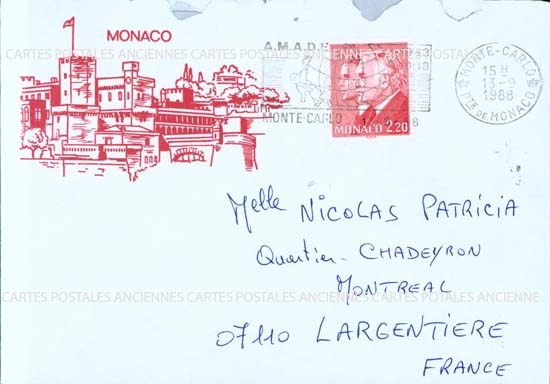 MONACO
A.M.A.D.E.
MONTE-CARLO
MONACO 2,20
MONTE-CARLO
15 H
13-9
1988
PTE DE MONACO
CARTES POSTALES ANCIENNES CARTES POSTALES ANCIENNES CARTES
Melle NICOLAS PATRICIA
Quartier CHADEYRON
MONTREAL
CARTES POSTALES ANCIENNES CARTES POSTALES ANCIENNES CARTES POSTALES ANCIENNE
07110 LARGENTIERE
FRANCE